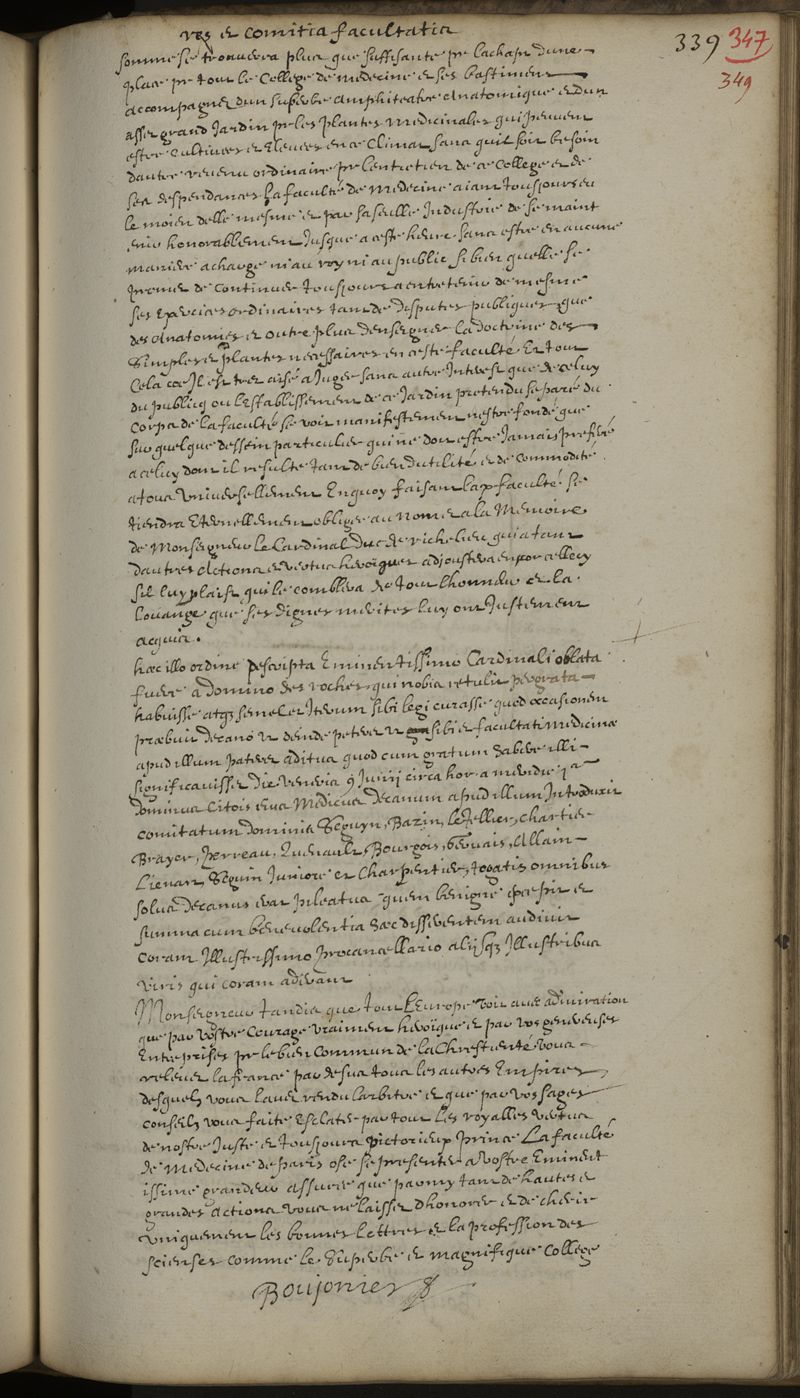 res et comitia facultatis
339 347
349
somme se trouvera plus que suffisante pr lachapt dune
place pr tout le College de medecine et ses bastimens
accompagné dun superbe amphiteatre Anatomique et dun
asses grand Jardin pr les plantes medicinales qui peuvent
estre cultivees et eleuees en ce climat sans quil soit besoin
dautre revenu ordinaire pr lentretien de ce College et de
ses despendances La faculté de Medecine aiant tousjours eu
le moien delle mesme et par sa seulle Industrie de se maint
enir honorablement Jusque a ceste heure sans estre en aucune
maniere a charge ni au roy ni au public si bien quelle se
promet de continuer tousjours a entretenir de mesme
ses exercices ordinaires tant de disputes publiques que
des Anatomies et outre plus denseigner la doctrine des
Simples et plantes necessaires en ceste faculté Et tout
Cela ce Il est tres aisé a Juger sans autre Interest que de celuy
du publicq ou lestablissement de ce Jardin pretendu separé du
Corps de la faculté se voit manifestement nestre fondé que
sur quelque dessein particulier qui ne doit estre Jamais preferé
a celuy dont il resulte tant de bien dutilité et de commodité
a tous Universellement En quoy faisant lad faculté se
tiendra Eternellement obligee au nom et a la Memoire
de Monseigneur Le Cardinal Duc de richelieu qui a tant
dautres Actions et vertus heroiques adjoustera encor celle cy
sil luy plaist qui le comblera de tout lhonneur et la
louange que ses dignes merites luy ont Justement
acquis.
hæc illo ordine pescripta Eminentissimo Cardinali oblata
fuere a domino des roches qui nobis retulit pergrata
habuisse atq semel et Iterum sibi legi curasse quod occasionem
præbuit decano ut deinde peteret ut sibi et facultati medicinæ
apud illum pateret aditus quod cum gratum habere illi
significauisset die veneris 9 Junij circa hora meridie 1a
dominus Citois eius Medicus Decanum apud illum Introduxit
comitatum dominis Seguyn, Bazin, le Tellier, Chartier
Brayer, Perreau, Quenault, Bourgois, Gervais, Allain
Lienart, Seguin Juniore et Charpentier, togatis omnibus
solus Decanus erat pileatus quem benigne excepit et
summa cum beneuolentia hæc disserentem audiuit
coram Illustrissimo procancellario alijsq Illustribus
viris qui coram aderant
Monseigneur tandis que tout lEurope voit auec admiration
que par vostre Courage vraiment heroique et par vos genereuses
Entreprises pr le bien commun de la Chrestienté vous
releuez la france par dessus tous les autres Empires
desquels vous lauez rendu larbitre et que par vos sages
conseils vous faite esclater par tout les royalles vertus
de nostre Juste et tousjours victorieux prince La faculté
de Medecine de paris ose se presenter a vostre Eminent
issime grandeur assuree que parmy tant de hautes et
grandes actions vous ne laissez dhonorer et de cherir
uniquement les bonnes lettres et la profession des
scienses comme le superbe et magnifique College
Boujonier